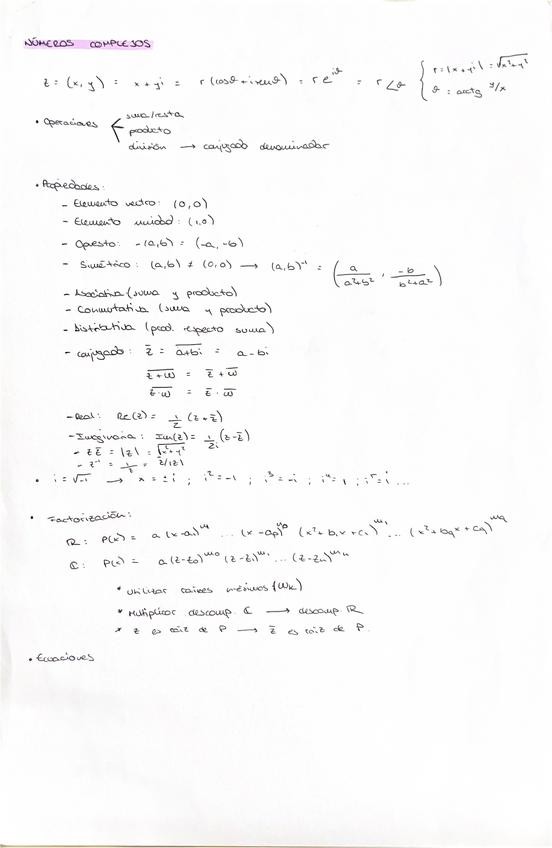 NÚMEROS COMPLEJOS
z = (x, y) = x + yi = r (cosθ + i senθ) = r e^{iθ} = r ∠θ { r = |x + yi| = √x²+y²
θ = arctg y/x
• Operaciones < suma/resta
producto
división → conjugado denominador
• Propiedades:
- Elemento neutro: (0,0)
- Elemento unidad: (1,0)
- Opuesto: -(a,b) = (-a, -b)
- Simétrico: (a,b) ≠ (0,0) → (a,b)⁻¹ = (a/(a²+b²), -b/(b²+a²))
- Asociativa (suma y producto)
- Conmutativa (suma y producto)
- Distributiva (prod. respecto suma)
- conjugado: z̅ = \overline{a+bi} = a - bi
\overline{z+w} = z̅ + w̅
\overline{z·w} = z̅ · w̅
- Real: Re(z) = 1/2 (z + z̅)
- Imaginaria: Im(z) = 1/2i (z - z̅)
- z z̅ = |z| = √x²+y²
- z⁻¹ = 1/z = z̅/|z|
• i = √-1 → x = ± i ; i² = -1 ; i³ = -i ; i⁴ = 1 ; i⁵ = i ...
• Factorización:
ℝ: P(x) = a (x - a₁)^{n₁} ... (x - a_p)^{n_p} (x² + b₁x + c₁)^{m₁} ... (x² + b_q x + c_q)^{m_q}
ℂ: P(x) = a (z - z₀)^{m₀} (z - z₁)^{m₁} ... (z - z_n)^{m_n}
* Utilizar raíces enésimas (W_k)
* Multiplicar descomp. ℂ → descomp. ℝ
* z es raíz de P → z̅ es raíz de P.
• Ecuaciones